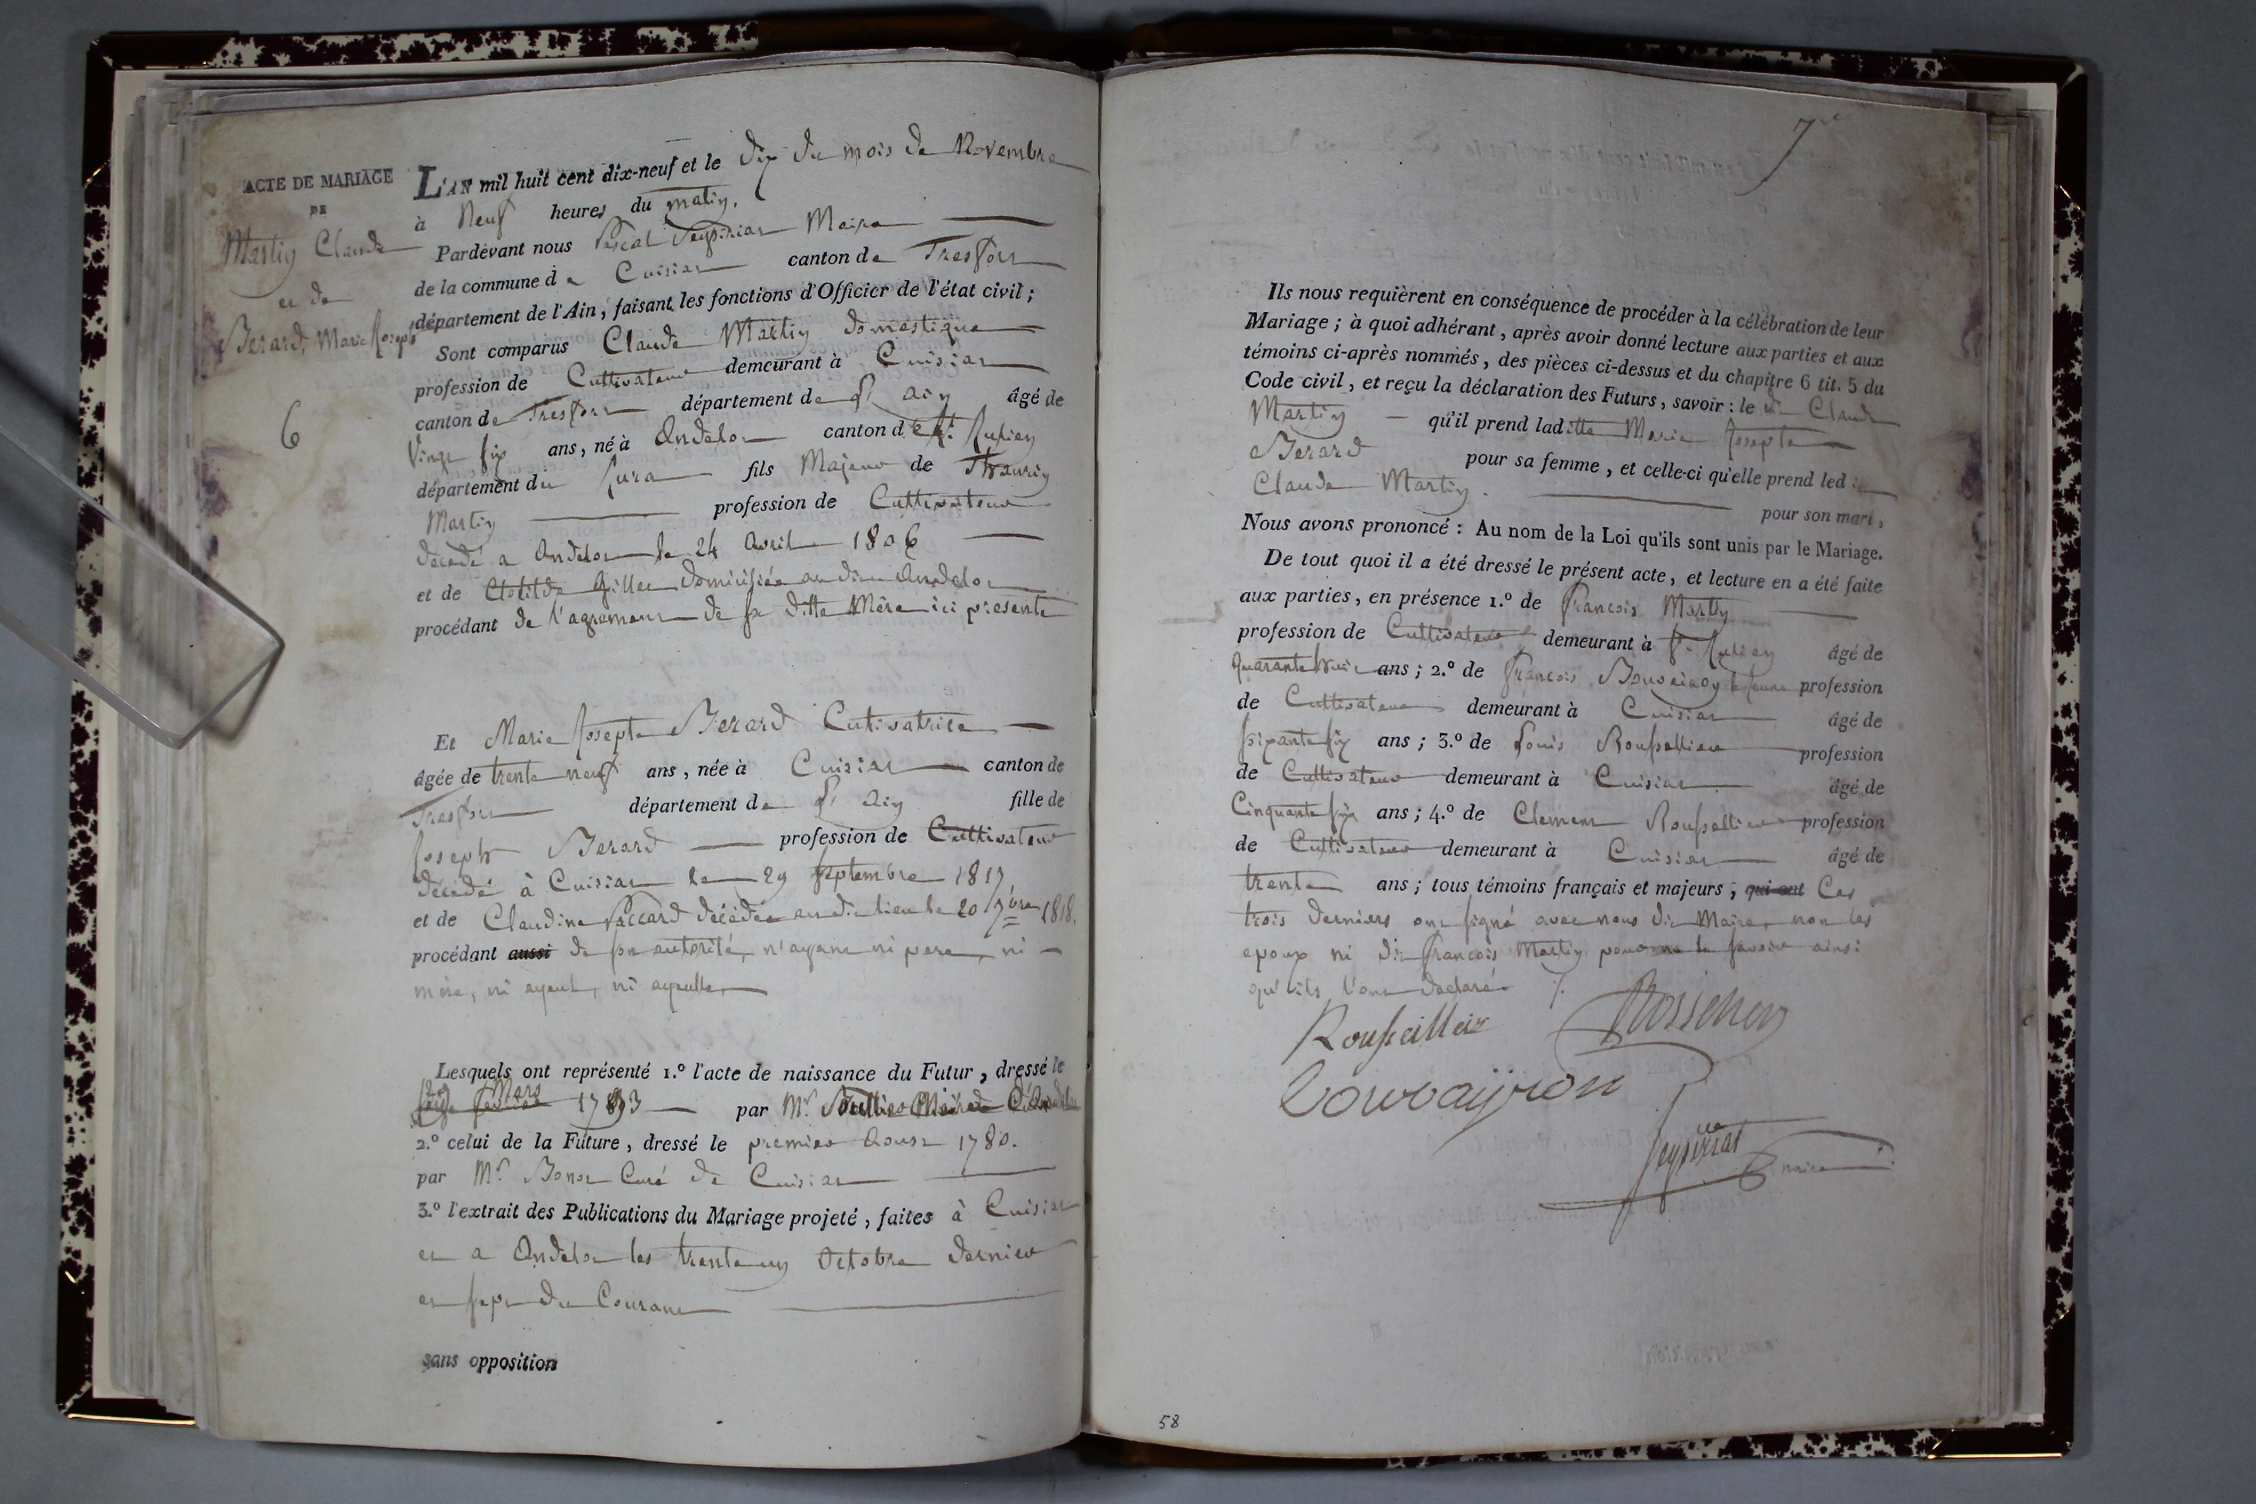 ACTE DE MARIAGE
DE
Martin Claude
et de
Berard, Marie Joseph
6
L'AN mil huit cent dix-neuf et le dix du mois de Novembre
à Neuf heures du matin.
Pardevant nous Pascal Maire
de la commune de Cuisiat canton de Treffort
département de l'Ain, faisant les fonctions d'Officier de l'état civil;
Sont comparus Claude Martin domestique
profession de Cultivateur demeurant à Cuisiat
canton de Treffort département de l'ain âgé de
Vingt six ans, né à Andelot canton de St. Julien
département du Jura fils Majeur de Thaurin
Martin profession de Cultivateur
décédé a Andelot le 24 avril 1806
et de Clotilde Gillet domiciliée au dit Andelot
procédant de l'agrement de sa ditte Mère ici presente
Et Marie Josepte Berard Cutivatrice
âgée de trente neuf ans, née à Cuisiat canton de
Treffort département de l'ain fille de
Joseph Berard profession de Cultivateur
décédé à Cuisiat le 29 septembre 1817
et de Claudine Paccard décédée au dit lieu le 20 7bre 1818.
procédant aussi de son autorité, n'ayant ni pere, ni
mère, ni ayeul, ni ayeulle,
Lesquels ont représenté 1.º l'acte de naissance du Futur, dressé le
Mars 1793 par Mr. Maire d'Andelot
2.º celui de la Future, dressé le premier Aoust 1780.
par Mr. Bonot Curé de Cuisiat
3.º l'extrait des Publications du Mariage projeté, faites à Cuisiat
et a Andelot les trente un Octobre dernier
et sept du Courant
sans opposition
7e
Ils nous requièrent en conséquence de procéder à la célébration de leur
Mariage; à quoi adhérant, après avoir donné lecture aux parties et aux
témoins ci-après nommés, des pièces ci-dessus et du chapitre 6 tit. 5 du
Code civil, et reçu la déclaration des Futurs, savoir: le dit Claude
Martin qu'il prend laditte Marie Josepte
Berard pour sa femme, et celle-ci qu'elle prend led it
Claude Martin. pour son mari,
Nous avons prononcé: Au nom de la Loi qu'ils sont unis par le Mariage.
De tout quoi il a été dressé le présent acte, et lecture en a été faite
aux parties, en présence 1.º de francois Martin
profession de Cultivateur demeurant à St. Julien âgé de
quarante huit ans; 2.º de francois Bouvairon le jeune profession
de Cultivateur demeurant à Cuisiat âgé de
soixante six ans; 3.º de Louis Roussellier profession
de Cultivateur demeurant à Cuisiat âgé de
Cinquante six ans; 4.º de Clement Rousellier profession
de Cultivateur demeurant à Cuisiat âgé de
trente ans; tous témoins français et majeurs, qui ont Ces
trois derniers ont signé avec nous dit Maire, non les
epoux ni dit francois Martin pour ne le savoir ainsi
qu'ils l'ont declaré /.
maire
58